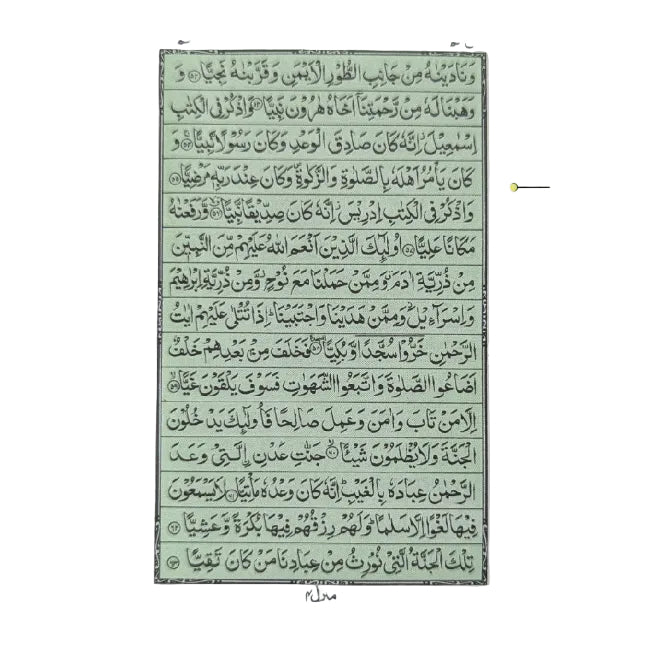 وَنَادَيْنٰهُ مِنْ جَانِبِ الطُّوْرِ الْاَيْمَنِ وَقَرَّبْنٰهُ نَجِيًّا ﴿۵۲﴾ وَ
وَهَبْنَا لَهٗ مِنْ رَّحْمَتِنَاۤ اَخَاهُ هٰرُوْنَ نَبِيًّا ﴿۵۳﴾ وَاذْكُرْ فِی الْكِتٰبِ
اِسْمٰعِيْلَ ؗ اِنَّهٗ كَانَ صَادِقَ الْوَعْدِ وَكَانَ رَسُوْلًا نَّبِيًّا ﴿۵۴﴾ وَ
كَانَ يَاْمُرُ اَهْلَهٗ بِالصَّلٰوةِ وَالزَّكٰوةِ ۪ وَكَانَ عِنْدَ رَبِّهٖ مَرْضِيًّا ﴿۵۵﴾
وَاذْكُرْ فِی الْكِتٰبِ اِدْرِيْسَ ؗ اِنَّهٗ كَانَ صِدِّيْقًا نَّبِيًّا ﴿۵۶﴾ وَّرَفَعْنٰهُ
مَكَانًا عَلِيًّا ﴿۵۷﴾ اُولٰٓئِكَ الَّذِيْنَ اَنْعَمَ اللّٰهُ عَلَيْهِمْ مِّنَ النَّبِيّٖنَ
مِنْ ذُرِّيَّةِ اٰدَمَ ۗ وَمِمَّنْ حَمَلْنَا مَعَ نُوْحٍ ؗ وَّمِنْ ذُرِّيَّةِ اِبْرٰهِيْمَ
وَاِسْرَآءِيْلَ ؗ وَمِمَّنْ هَدَيْنَا وَاجْتَبَيْنَا ؕ اِذَا تُتْلٰی عَلَيْهِمْ اٰيٰتُ
الرَّحْمٰنِ خَرُّوْا سُجَّدًا وَّبُكِيًّا ﴿۵۸﴾ فَخَلَفَ مِنْۢ بَعْدِهِمْ خَلْفٌ
اَضَاعُوا الصَّلٰوةَ وَاتَّبَعُوا الشَّهَوٰتِ فَسَوْفَ يَلْقَوْنَ غَيًّا ﴿۵۹﴾
اِلَّا مَنْ تَابَ وَاٰمَنَ وَعَمِلَ صَالِحًا فَاُولٰٓئِكَ يَدْخُلُوْنَ
الْجَنَّةَ وَلَا يُظْلَمُوْنَ شَيْـًٔا ﴿۶۰﴾ جَنّٰتِ عَدْنِ ِۨالَّتِیْ وَعَدَ
الرَّحْمٰنُ عِبَادَهٗ بِالْغَيْبِ ؕ اِنَّهٗ كَانَ وَعْدُهٗ مَاْتِيًّا ﴿۶۱﴾ لَا يَسْمَعُوْنَ
فِيْهَا لَغْوًا اِلَّا سَلٰمًا ؕ وَلَهُمْ رِزْقُهُمْ فِيْهَا بُكْرَةً وَّعَشِيًّا ﴿۶۲﴾
تِلْكَ الْجَنَّةُ الَّتِیْ نُوْرِثُ مِنْ عِبَادِنَا مَنْ كَانَ تَقِيًّا ﴿۶۳﴾
منزل۴